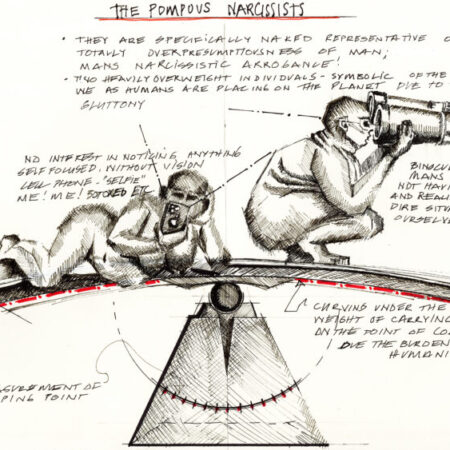 THE POMPOUS NARCISSISTS
• THEY ARE SPECIFICALLY NAKED REPRESENTATIVE O
TOTALLY OVERPRESUMPTIOUSNESS OF MAN;
MANS NARCISSISTIC ARROGANCE!
• TWO HEAVILY OVERWEIGHT INDIVIDUALS - SYMBOLIC OF THE
WE AS HUMANS ARE PLACING ON THE PLANET DUE TO
GLUTTONY
NO INTEREST IN NOTICING ANYTHING
SELF FOCUSED, WITHOUT VISION
CELL PHONE - "SELFIE"
ME! ME! ETC
BINOCU
MANS
NOT HAVI
AND REALI
DIRE SITU
OURSELVE
CURVING UNDER THE
WEIGHT OF CARRYING
ON THE POINT OF CO
DUE THE BURDEN
HUMANI
ASUREMENT OF
PING POINT